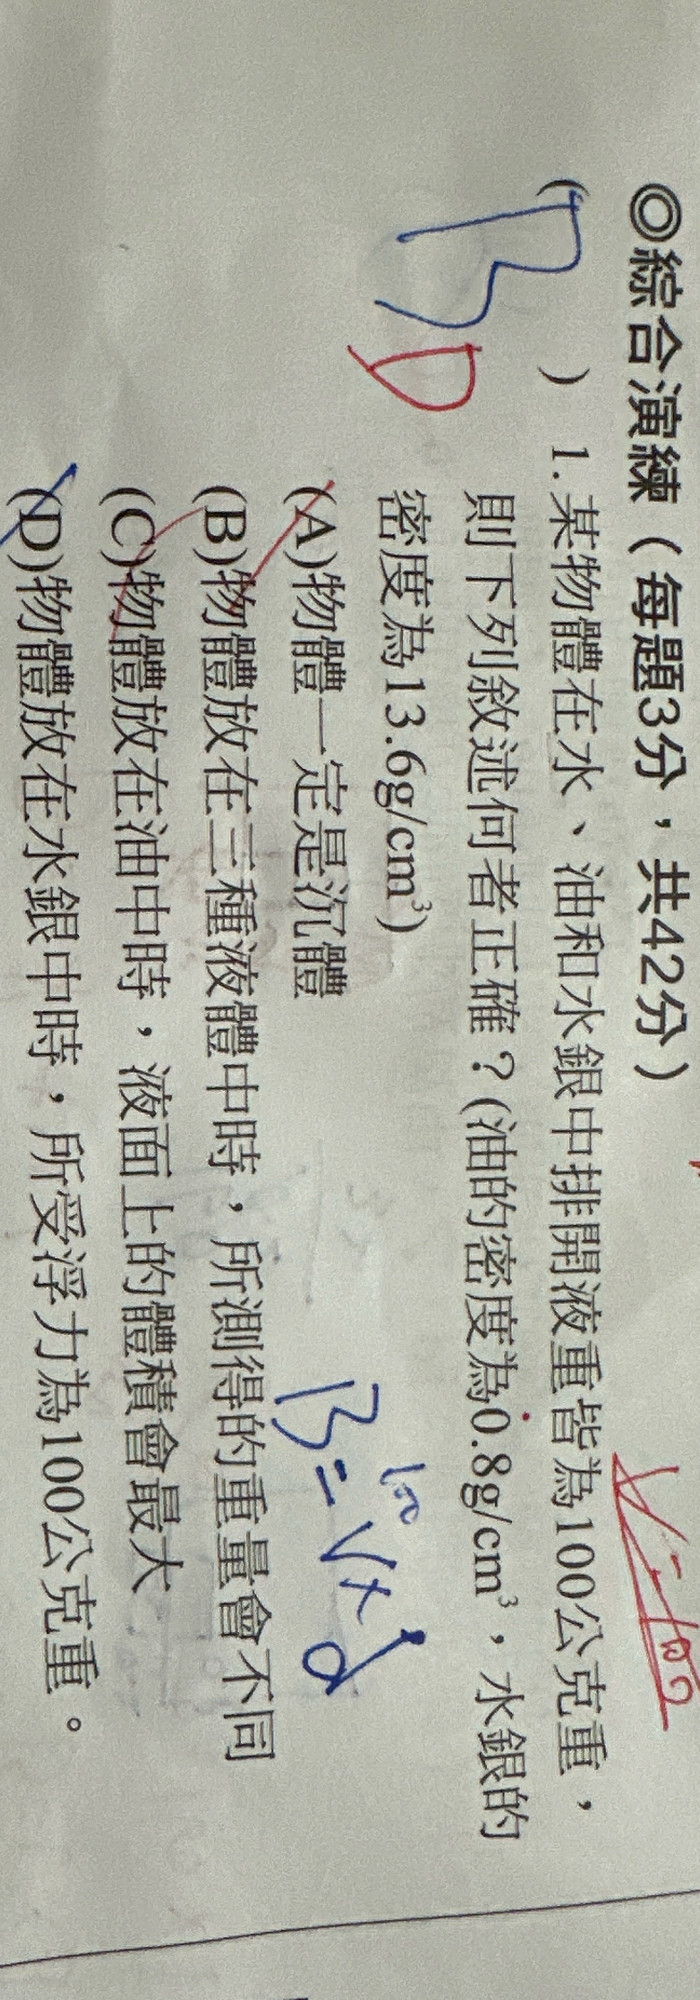 ◎綜合演練(每題3分,共42分)
(B) 1.某物體在水、油和水銀中排開液重皆為100公克重,
D
則下列敘述何者正確?(油的密度為0.8g/cm³,水銀的
密度為13.6g/cm³)
(A)物體一定是沉體
(B)物體放在三種液體中時,所測得的重量會不同
(C)物體放在油中時,液面上的體積會最大
(D)物體放在水銀中時,所受浮力為100公克重。
100
B=V×d